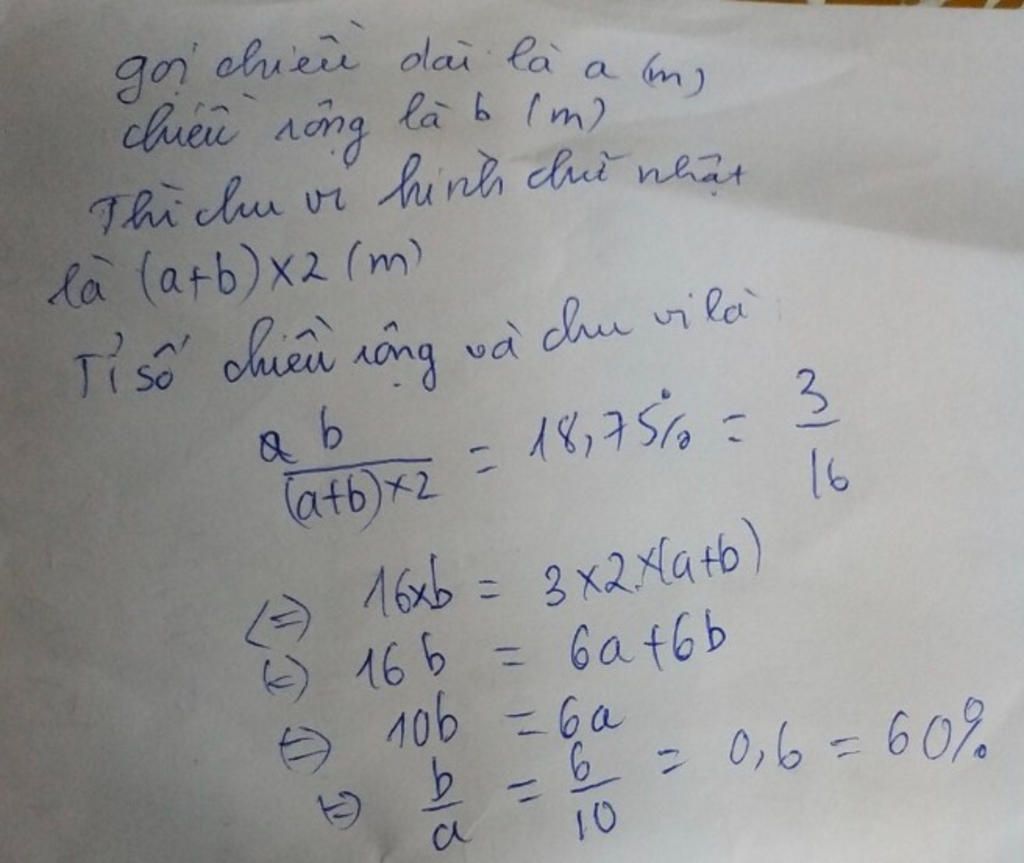 gọi chiều dài là a (m)
chiều rộng là b (m)
Thì chu vi hình chữ nhật
là (a+b)×2 (m)
Tỉ số chiều rộng và chu vi là
b/((a+b)×2) = 18,75% = 3/16
<=> 16×b = 3×2×(a+b)
<=> 16b = 6a+6b
<=> 10b = 6a
<=> b/a = 6/10 = 0,6 = 60%